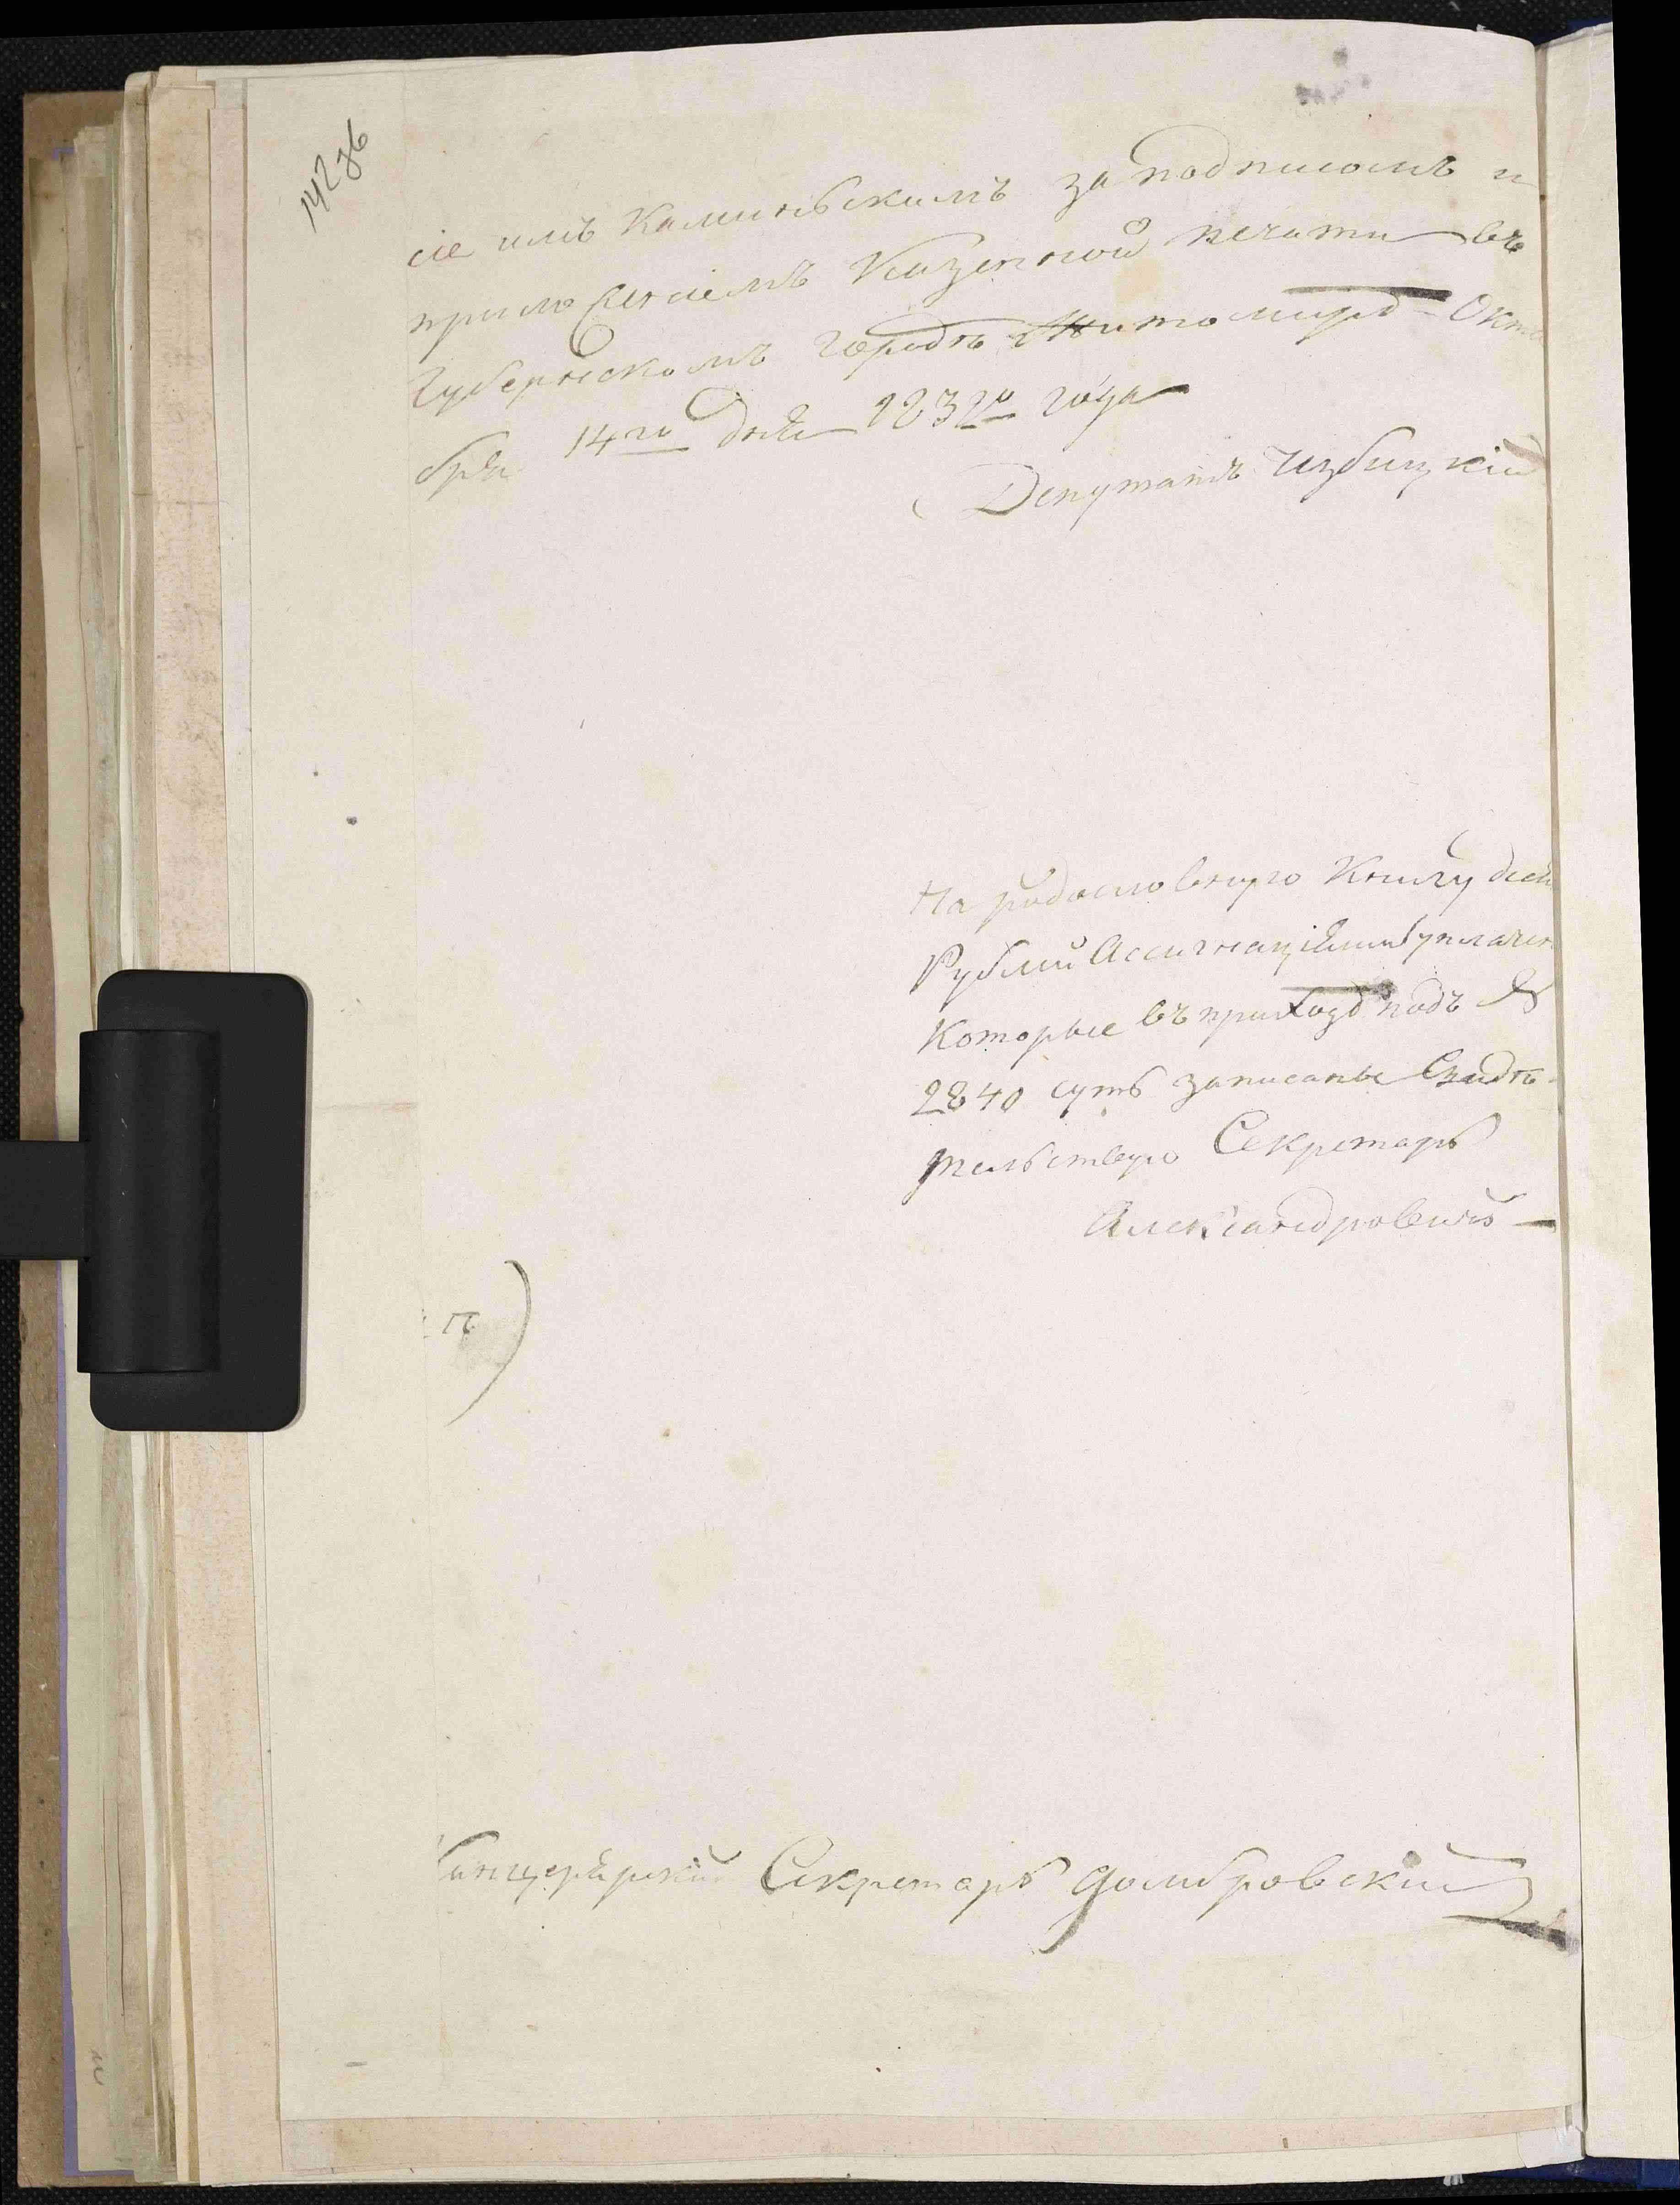 142 зв
сіе имъ Каминьскимъ за подписомъ и
приложеніемъ Казенной печати въ
Губернскомъ городѣ Житомирѣ Окт
бря 14го дня 1832го года
Депутатъ Избицкій
На родословную Книгу
Рублей Ассигнаціями уплачен
Которые въ приходѣ подъ №
2840 суть записаны Свидѣ
тельствую Секретарь
Александровичъ
П)
Канцелярскій Секретарь Домбровскій